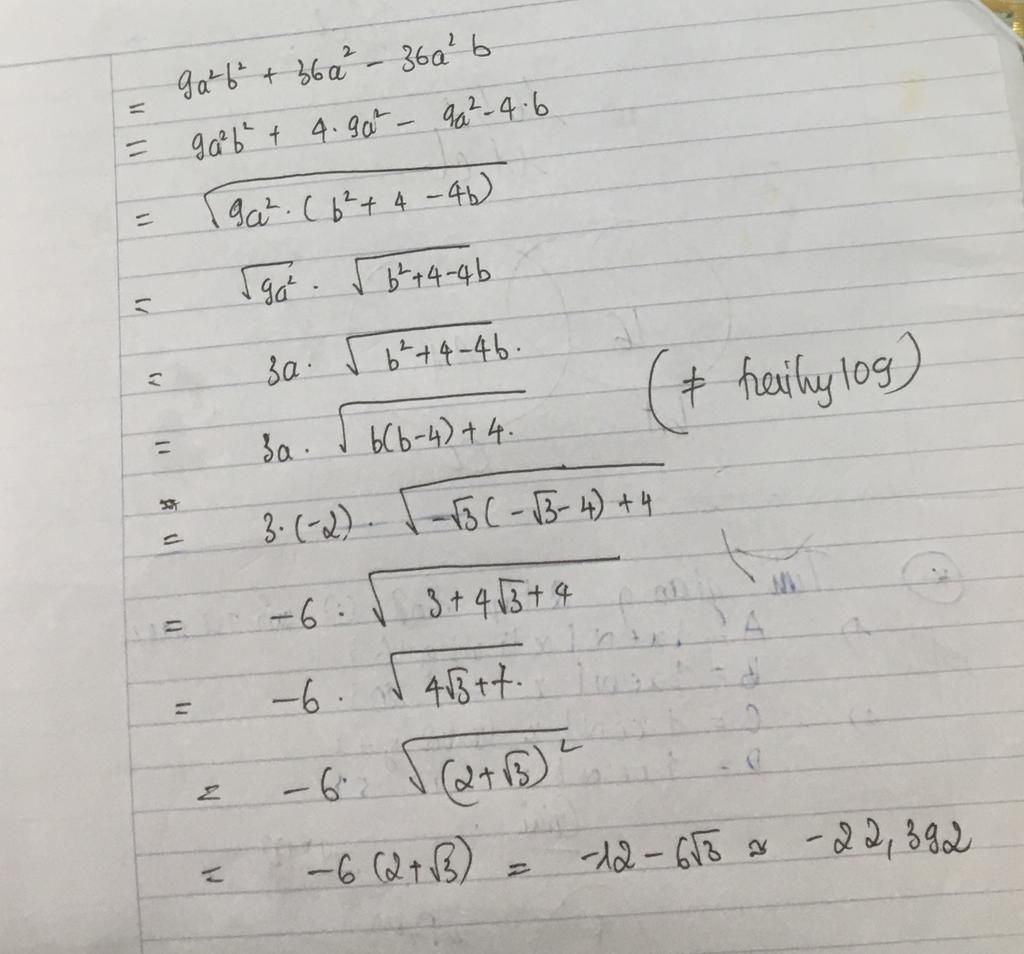 = 9a²b² + 36a² - 36a² b
= 9a²b² + 4. 9a² - 9a² - 4.b
= √9a². ( b² + 4 - 4b)
= √9a² . √b²+4-4b
= 3a. √b²+4-4b.
= 3a. √b(b-4) + 4.
= 3. (-2) . √-√3 ( -√3 - 4) + 4
= -6 . √3 + 4√3 + 4
= -6 . √4√3 + 7.
= -6. √(2+√3)²
= -6 (2+√3) = -12 - 6√3 ≈ -22,392
(≠